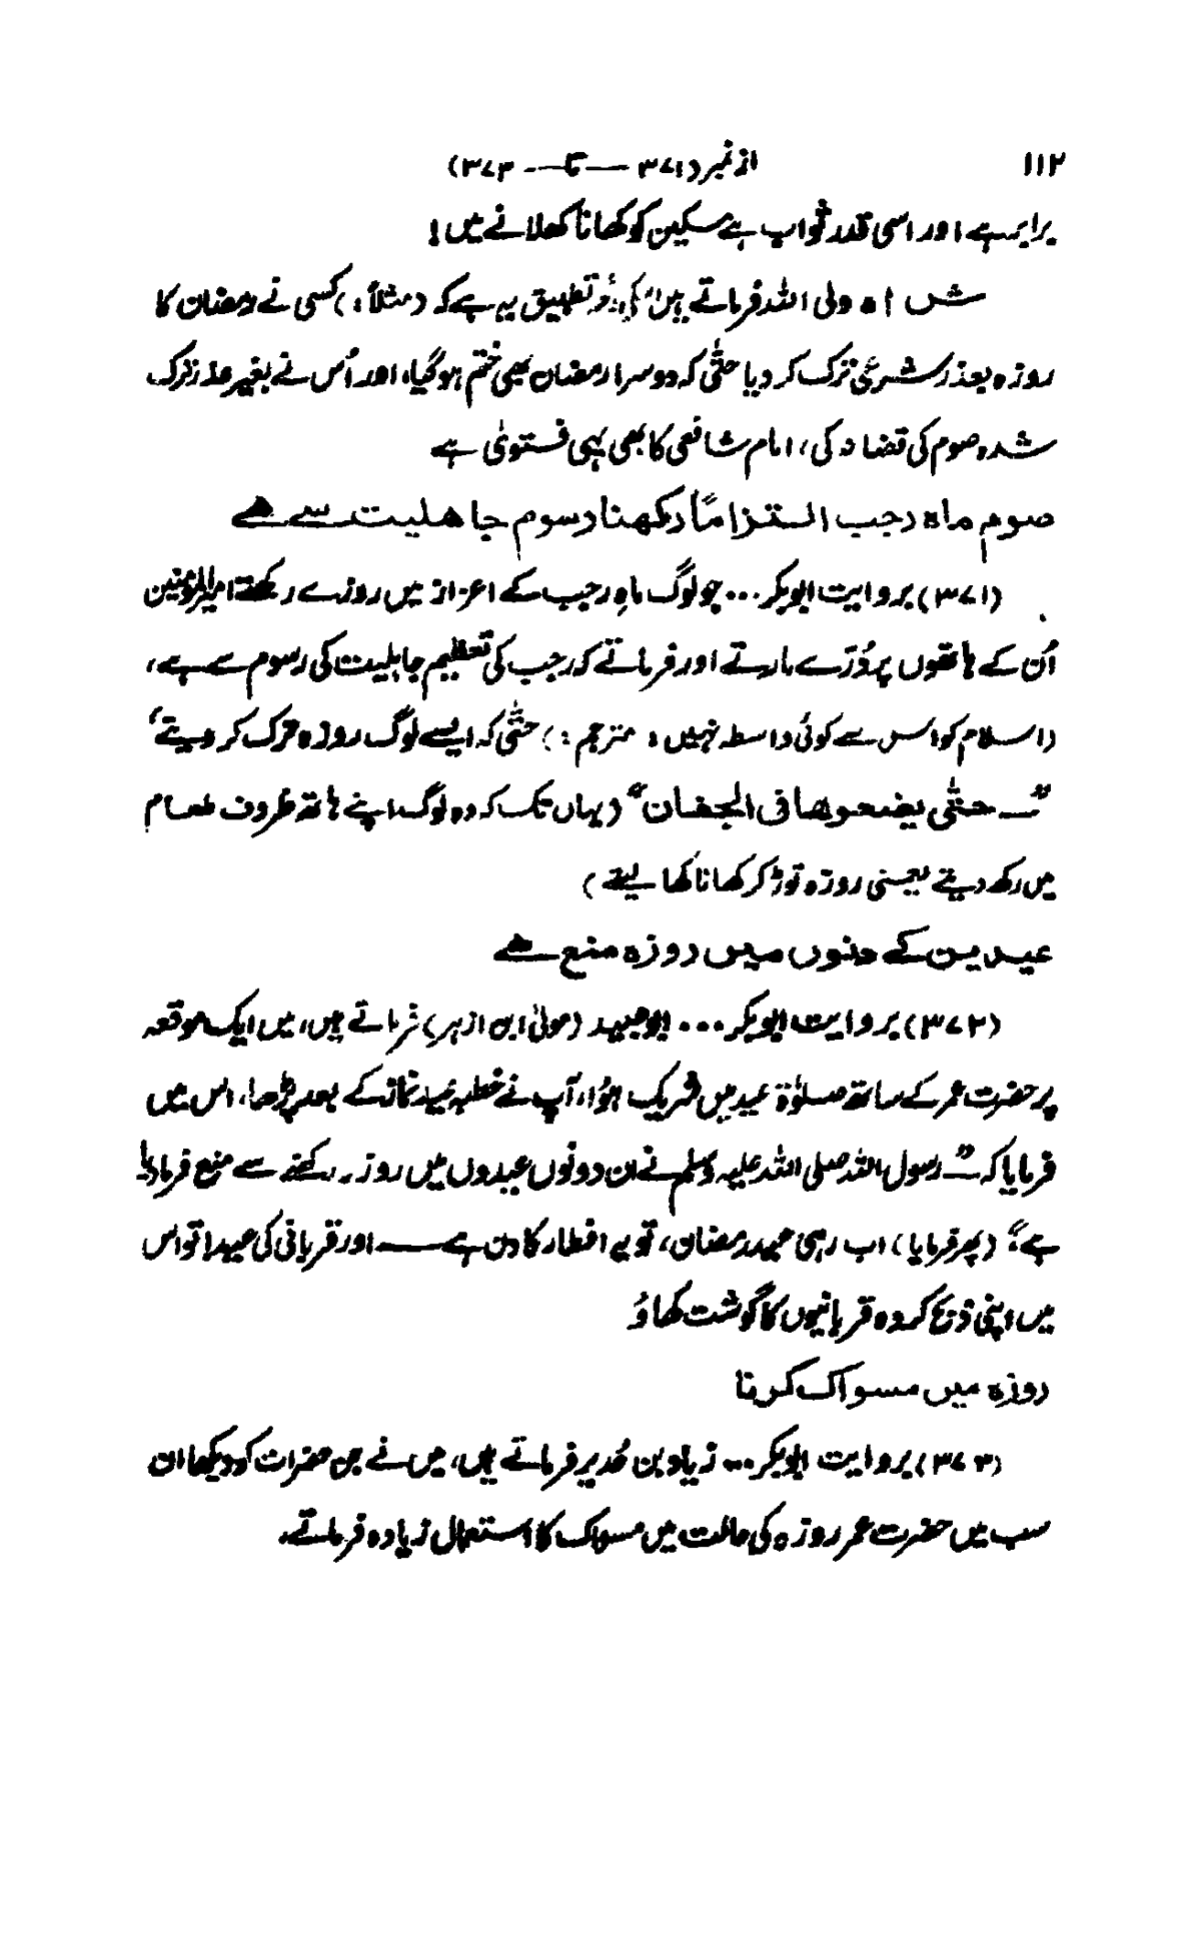 ۱۱۲
از نمبر (۳۷۱ — تا — ۳۷۳)
برابر ہے اور اسی قدر ثواب ہے مسکین کو کھانا کھلانے میں!
شاہ ولی اللہ فرماتے ہیں کہ تطبیق یہ ہے کہ (مثلاً:) کسی نے رمضان کا
روزہ بعذر شرعی ترک کر دیا حتّٰی کہ دوسرا رمضان بھی ختم ہو گیا، اور اُس نے بغیر عذر ترک
شدہ صوم کی قضا نہ کی، امام شافعی کا بھی یہی فتویٰ ہے
صوم ماہ رجب التزاماً رکھنا رسوم جاھلیت سے ھے
(۳۷۱) بروایت ابوبکر... جو لوگ ماہِ رجب کے اعزاز میں روزے رکھتے امیرالمؤمنین
اُن کے ہاتھوں پر دُرّے مارتے اور فرماتے کہ رجب کی تعظیم جاہلیت کی رسوم سے ہے،
(اسلام کو اس سے کوئی واسطہ نہیں: مترجم:) حتّٰی کہ ایسے لوگ روزہ ترک کر دیتے،
"— حتّٰی یضعوھا فی الجفان" (یہاں تک کہ وہ لوگ اپنے ہاتھ ظروف طعام
میں رکھ دیتے یعنی روزہ توڑ کر کھانا کھا لیتے)
عیدین کے دنوں میں روزہ منع ھے
(۳۷۲) بروایت ابوبکر... ابوعبید (مولیٰ ابن ازہر) فرماتے ہیں، میں ایک موقعہ
پر حضرت عمر کے ساتھ صلوٰۃ عید میں شریک ہؤا، آپ نے خطبہ عید نماز کے بعد پڑھا، اس میں
فرمایا کہ "— رسول اللہ صلی اللہ علیہ وسلم نے ان دونوں عیدوں میں روزہ رکھنے سے منع فرمایا
ہے" (پھر فرمایا) اب رہی عید رمضان، تو یہ افطار کا دن ہے — اور قربانی کی عید! تو اس
میں اپنی ذبح کردہ قربانیوں کا گوشت کھاؤ
روزہ میں مسواک کرنا
(۳۷۳) بروایت ابوبکر... زیاد بن حدیر فرماتے ہیں، میں نے جن حضرات کو دیکھا ان
سب میں حضرت عمر روزہ کی حالت میں مسواک کا استعمال زیادہ فرماتے۔